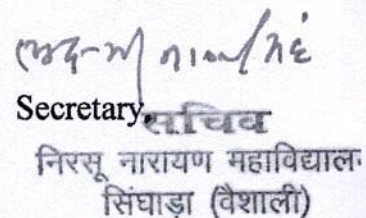 Secretary,
सचिव
निरसू नारायण महाविद्याल
सिंघाड़ा (वैशाली)